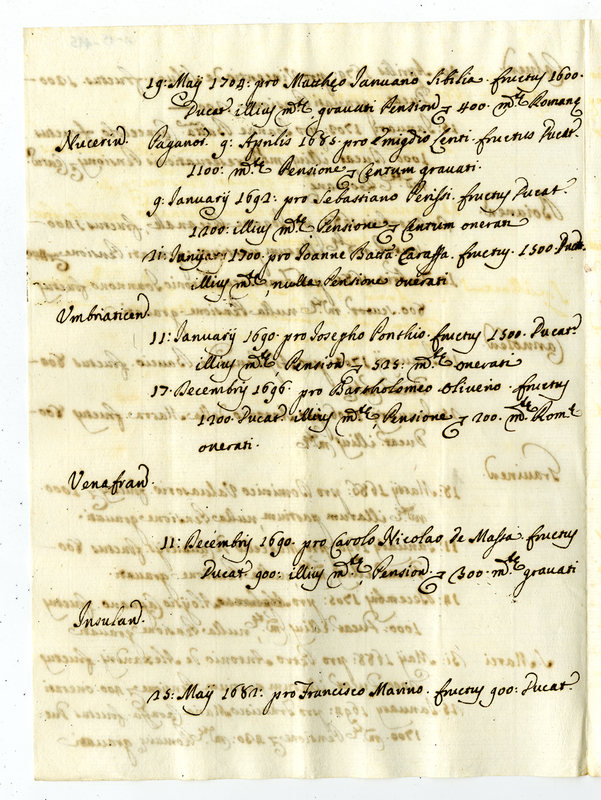 19: Maij 1704: pro Mattheo Ianuario Sibilia. fructus 1600.
Ducat: illius mtę gravati Pension 400. mtę Romanę
Nucerin. Paganor. 9: Aprilis 1685 pro Emigdio Centi. fructus Ducat.
1100: mtę Pensione Centum gravati.
9: Ianuarij 1692: pro Sebastiano Perissi. fructus Ducat.
1200: illius mtę Pensione Centum onerati
21: Iunij 1700: pro Ioanne Batta Caraffa. fructus. 1500. Ducat.
illius mtę, nulla Pensione onerati
Umbriaticen.
11: Ianuarij 1690. pro Iosepho Ponthio. fructus 1500. Ducat.
illius mtę, Pension 525: mtę onerati
17. Decembris 1696. pro Bartholomeo Oliverio. fructus
1200. Ducat. illius mtę, Pensione 200. mtę Romę
onerati.
Venafran.
11: Decembris 1690. pro Carolo Nicolao de Massa. fructus
Ducat. 900: illius mtę Pension 300. mtę gravati
Insulan.
25: Maij 1682: pro Francisco Marino. fructus 900: Ducat.